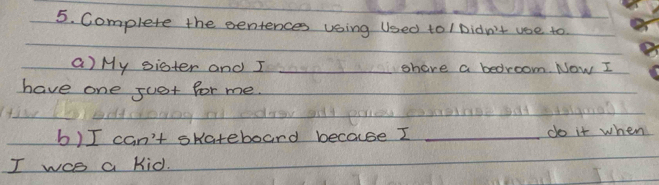 5. Complete the sentences using Used to / Didn't use to.
a) My sister and I __________ share a bedroom. Now I
have one just for me.
b) I can't skateboard because I __________ do it when
I was a kid.